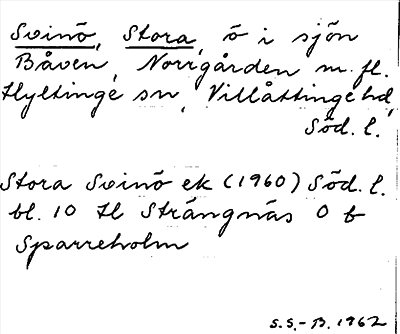 Svinö, Stora, ö i sjön
Båven, Norrgården m. fl.
Hyltinge sn, Villåttinge hd,
Söd. l.
Stora Svinö ek (1960) Söd. l.
bl. 10 tl Strängnäs O b
Sparreholm
S.S.-B. 1962